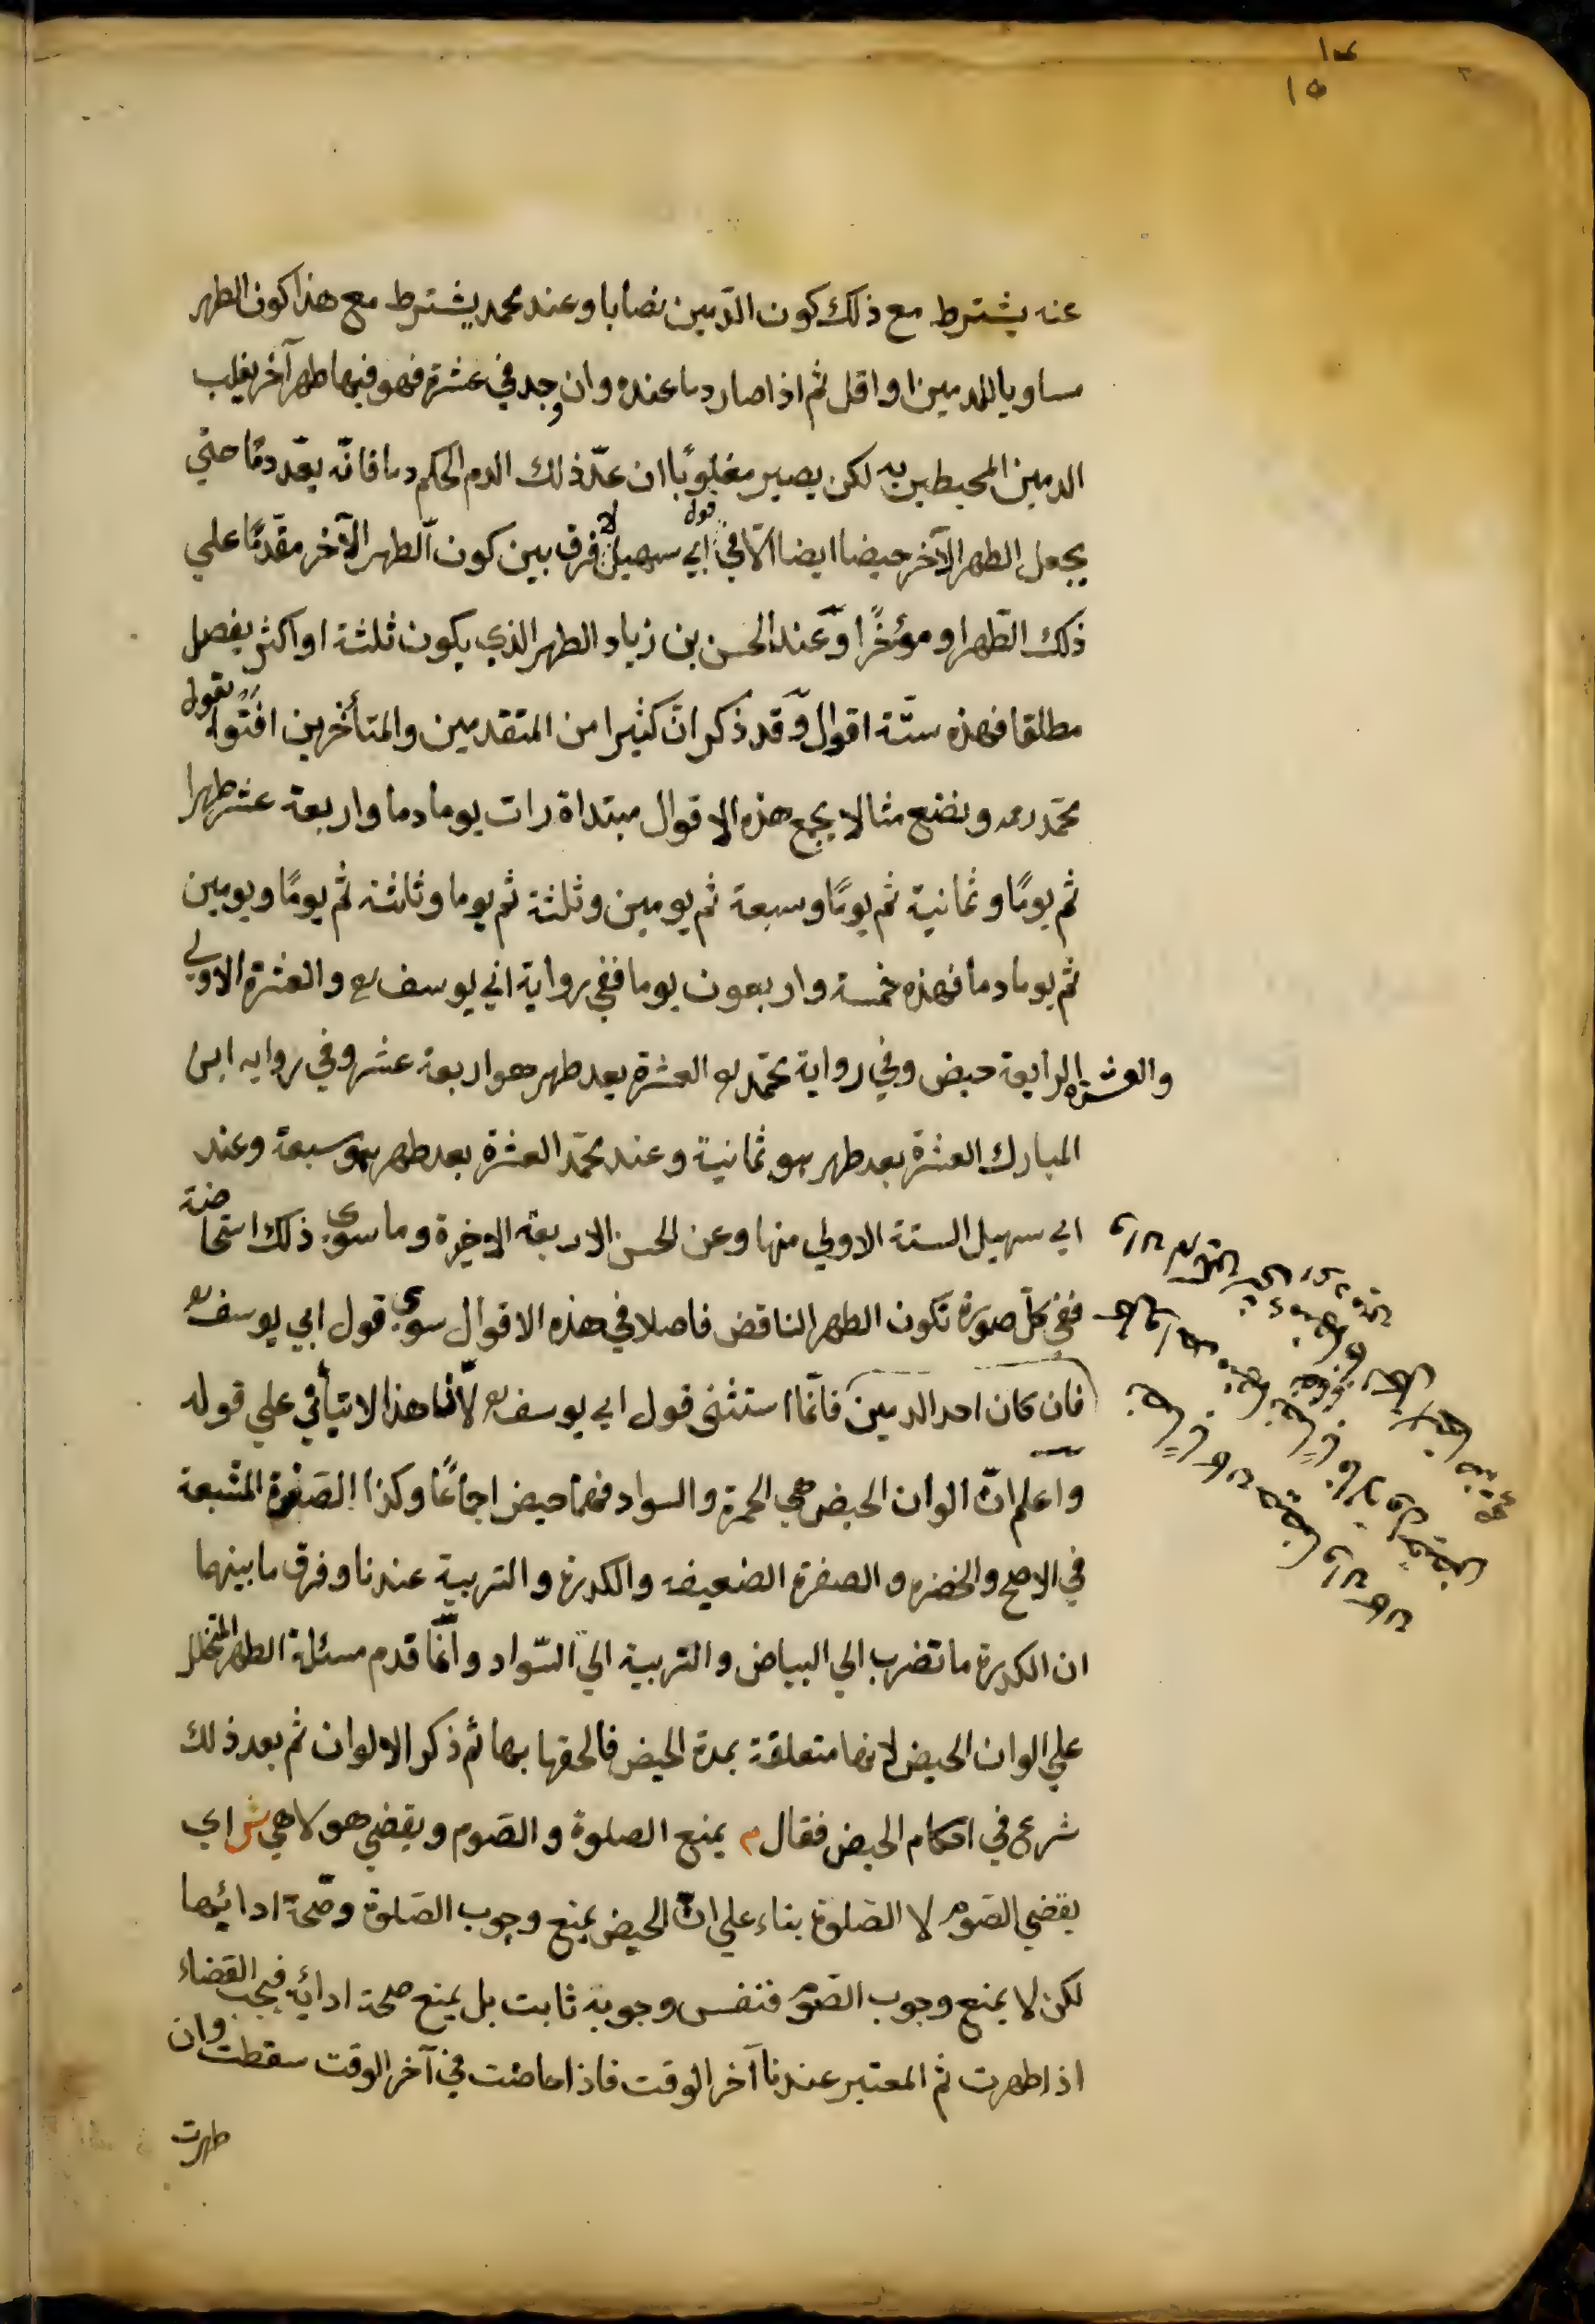 ١٥
عنه يشترط مع ذلك كون الدّمين نصابا وعند محمد يشترط مع هذا كون الطهر
مساويا للدمين او اقل ثم اذا صار دما عنده وان وجد في عشرة فهو فيها طهر آخر يغلب
الدمين المحيطين به لكن يصير مغلوبًا ان عدّ ذلك الدم الحكم دما فانّه يعدّ دمًا حتي
يجعل الطهر الآخر حيضا ايضا الّا في قول ابي سهيل لا فرق بين كون الطهر الآخر مقدّمًا علي
ذلك الطهر او مؤخرًا وعند الحسن بن زياد الطهر الذي يكون ثلثة او اكثر يفصل
مطلقا فهذه ستّة اقوال وقد ذكر انّ كثيرا من المتقدمين والمتأخرين افتوا بقول
محمّد رحمه ونضع مثالا يجمع هذه الاقوال مبتداة رات يوما دما واربعة عشر طهرا
ثم يومًا وثمانية ثم يومًا وسبعة ثم يومين وثلثة ثم يوما وثلثة ثم يومًا ويومين
ثم يوما دما فهذه خمسة واربعون يوما ففي رواية ابي يوسف رح والعشرة الاولي
والعشرة الرابعة حيض وفي رواية محمّد رح العشرة بعد طهر هو اربعة عشر وفي روايه ابن
المبارك العشرة بعد طهر هو ثمانية وعند محمّد العشرة بعد طهر هو سبعة وعند
ابي سهيل الستة الاولي منها وعن الحسن الاربعة الاخيرة وما سوي ذلك استحاضة
ففي كلّ صورة تكون الطهر الناقض فاصلا في هذه الاقوال سوي قول ابي يوسف رح
فان كان احد الدمين فانّما استثنى قول ابي يوسف رح لأنّ هذا لا يتأتي علي قوله
واعلم انّ الوان الحيض هي الحمرة والسواد فهما حيض اجماعًا وكذا الصفرة المشبعة
في الاصح والخضره والصفرة الضعيفه والكدرة والتربية عندنا وفرق ما بينهما
ان الكدرة ما تضرب الي البياض والتربية الي السّواد وانّما قدم مسئلة الطهر المتخلل
علي الوان الحيض لانها متعلقة بمدة الحيض فالحقها بها ثم ذكر الالوان ثم بعد ذلك
شرع في احكام الحيض فقال م يمنع الصلوة والصّوم ويقضي هو لا هي ش اي
يقضي الصّوم لا الصّلوة بناء علي انّ الحيض يمنع وجوب الصّلوة وصحّة ادائها
لكن لا يمنع وجوب الصّوم فنفس وجوبه ثابت بل يمنع صحة ادائه فيجب القضاء
اذا طهرت ثم المعتبر عندنا آخر الوقت فاذا حاضت في آخر الوقت سقطت وان
طهرت